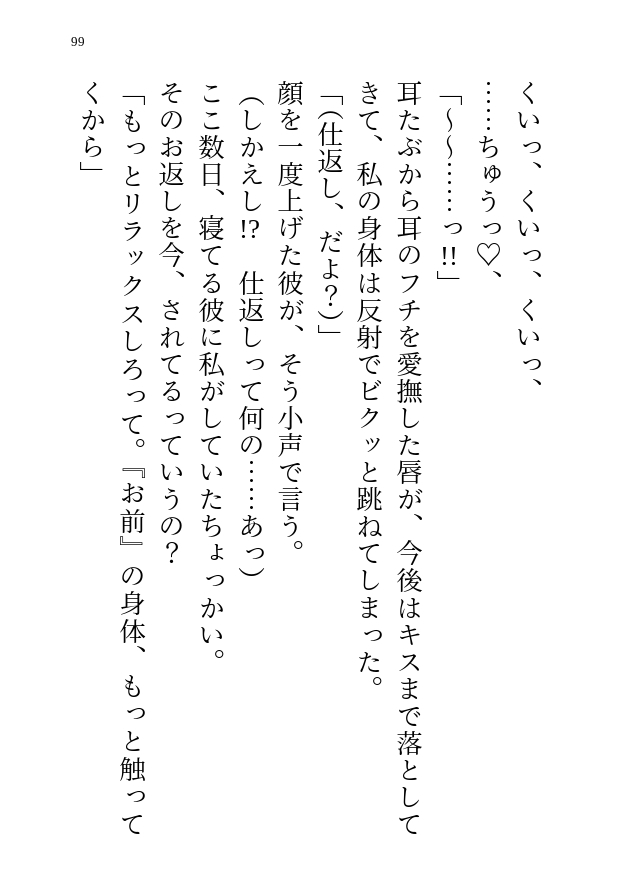 99
くいっ、くいっ、くいっ、
……ちゅうっ♡、
「～～……っ!!」
耳たぶから耳のフチを愛撫した唇が、今後はキスまで落として
きて、私の身体は反射でビクッと跳ねてしまった。
「（仕返し、だよ？）」
顔を一度上げた彼が、そう小声で言う。
（しかえし!?　仕返しって何の……あっ）
ここ数日、寝てる彼に私がしていたちょっかい。
そのお返しを今、されてるっていうの？
「もっとリラックスしろって。『お前』の身体、もっと触って
くから」